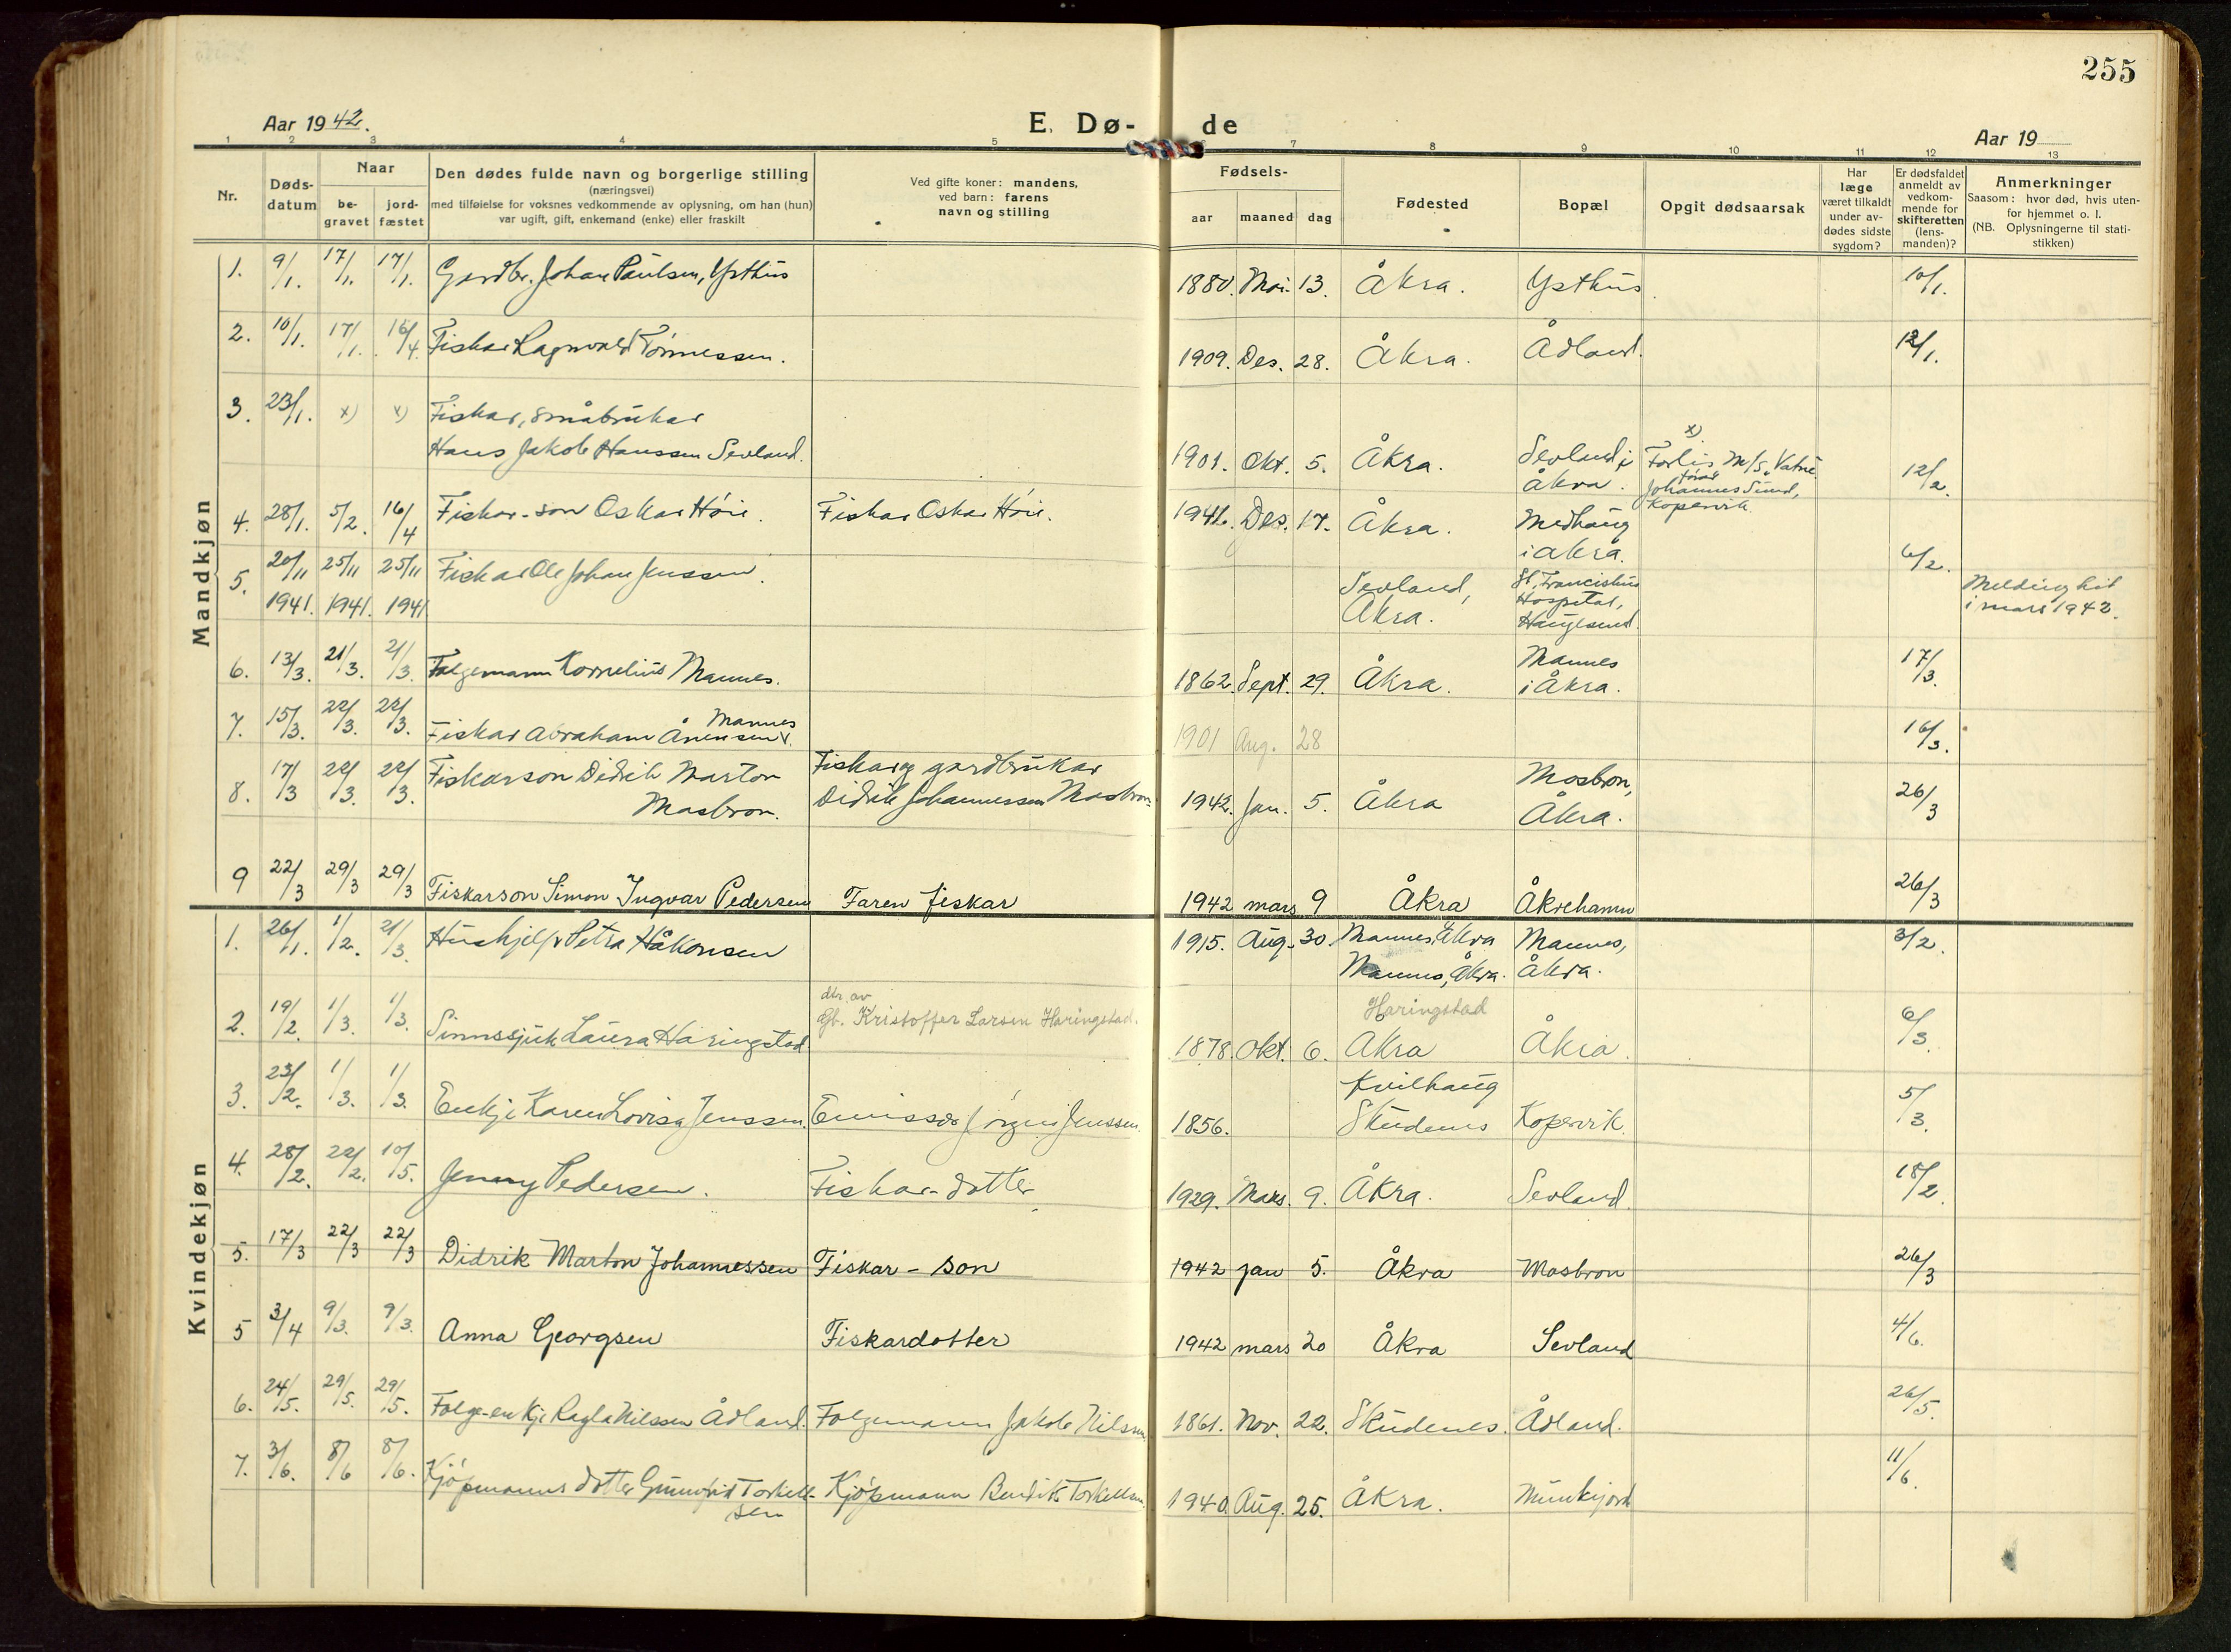 255
Aar 1942.
E. Dø-de
Aar 19
1 2 3 4 5 7 8 9 10 11 12 13
Nr.
Døds-
datum
Naar
be-
gravet
jord-
fæstet
Den dødes fulde navn og borgerlige stilling
(næringsvei)
med tilføielse for voksnes vedkommende av oplysning, om han (hun)
var ugift, gift, enkemand (enke) eller fraskilt
Ved gifte koner: mandens,
ved barn: farens
navn og stilling
Fødsels-
aar maaned dag
Fødested
Bopæl
Opgit dødsaarsak
Har
læge
været tilkaldt
under av-
dødes sidste
sygdom?
Er dødsfaldet
anmeldt av
vedkom-
mende for
skifteretten
(lens-
manden)?
Anmerkninger
Saasom: hvor død, hvis uten-
for hjemmet o. l.
(NB. Oplysningerne til stati-
stikken)
Mandkjøn
1. 9/1. 17/1. 17/1. Gardbr. Johan Paulsen, Ysthus 1880. Mai. 13. Åkra. Ysthus. 10/1.
2. 10/1. 17/1. 16/4. Fiskar Ragnvald Tønnessen. 1909. Des. 28. Åkra. Ådland. 12/1.
3. 23/1. x) x) Fiskar, småbrukar
Hans Jakob Hanssen Sevland. 1901. Okt. 5. Åkra. Sevland i
Åkra. x) Forlis M/S. Vatne
Johannes Sund,
Kopervik. 12/2.
4. 28/1. 5/2. 16/4 Fiskar-son Oskar Høie. Fiskar Oskar Høie. 1941. Des. 17. Åkra. Medhaug
i Åkra. 6/2.
5. 20/11 25/11 25/11 Fiskar Ole Johan Jenssen.
1941. 1941. 1941 Sevland,
Åkra. St. Franciskus
Hospital,
Haugesund. Melding hit
i mars 1942.
6. 13/3. 21/3. 21/3. Folgemann Kornelius Mannes. 1862. Sept. 29. Åkra. Mannes
i Åkra. 17/3.
7. 15/3. 22/3. 22/3. Fiskar Abraham Ånensen Mannes 1901 Aug. 28 16/3.
8. 17/3 22/3. 22/3. Fiskarson Didrik Marton
Mosbron. Fiskar og gardbrukar
Didrik Johannessen Mosbron. 1942. Jan. 5. Åkra Mosbron,
Åkra. 26/3
9 22/3 29/3 29/3 Fiskarson Simon Ingvar Pedersen Faren fiskar 1942 mars 9 Åkra Åkrehamn 26/3
Kvindekjøn
1. 26/1. 1/2. 21/3. Hushjelp Petra Håkonsen 1915. Aug. 30. Mannes, Åkra
Mannes, Åkra. Mannes,
Åkra. 3/2.
2. 19/2. 1/3. 1/3. Sinnssjuk Laura Haringstad dtr. av
Gb. Kristoffer Larsen Haringstad. 1878. Okt. 6. Haringstad
Åkra Åkra. 6/3.
3. 23/2. 1/3. 1/3. Enkje Karen Lovisa Jenssen. Emissær Jørgen Jenssen. 1856. Kvilhaug
Skudenes Kopervik. 5/3.
4. 28/2. 22/2. 10/5. Jenny Pedersen. Fiskar-dotter 1929. Mars. 9. Åkra. Sevland. 18/2.
5. 17/3 22/3 22/3 Didrik Marton Johannessen Fiskar - son 1942 jan 5. Åkra Mosbron 26/3
5 3/4 9/3. 9/3. Anna Georgsen Fiskardotter 1942 mars 20 Åkra Sevland 4/6.
6. 24/5. 29/5. 29/5. Folge-enkje Ragla Nilssen Ådland. Folgemann Jakob Nilssen 1861. Nov. 22. Skudenes. Ådland. 26/5.
7. 3/6. 8/6 8/6. Kjøpmanns dotter Gunnfrid Torkell-
sen Kjøpmann Bendik Torkellsen. 1940. Aug. 25. Åkra. Munkjord 11/6.